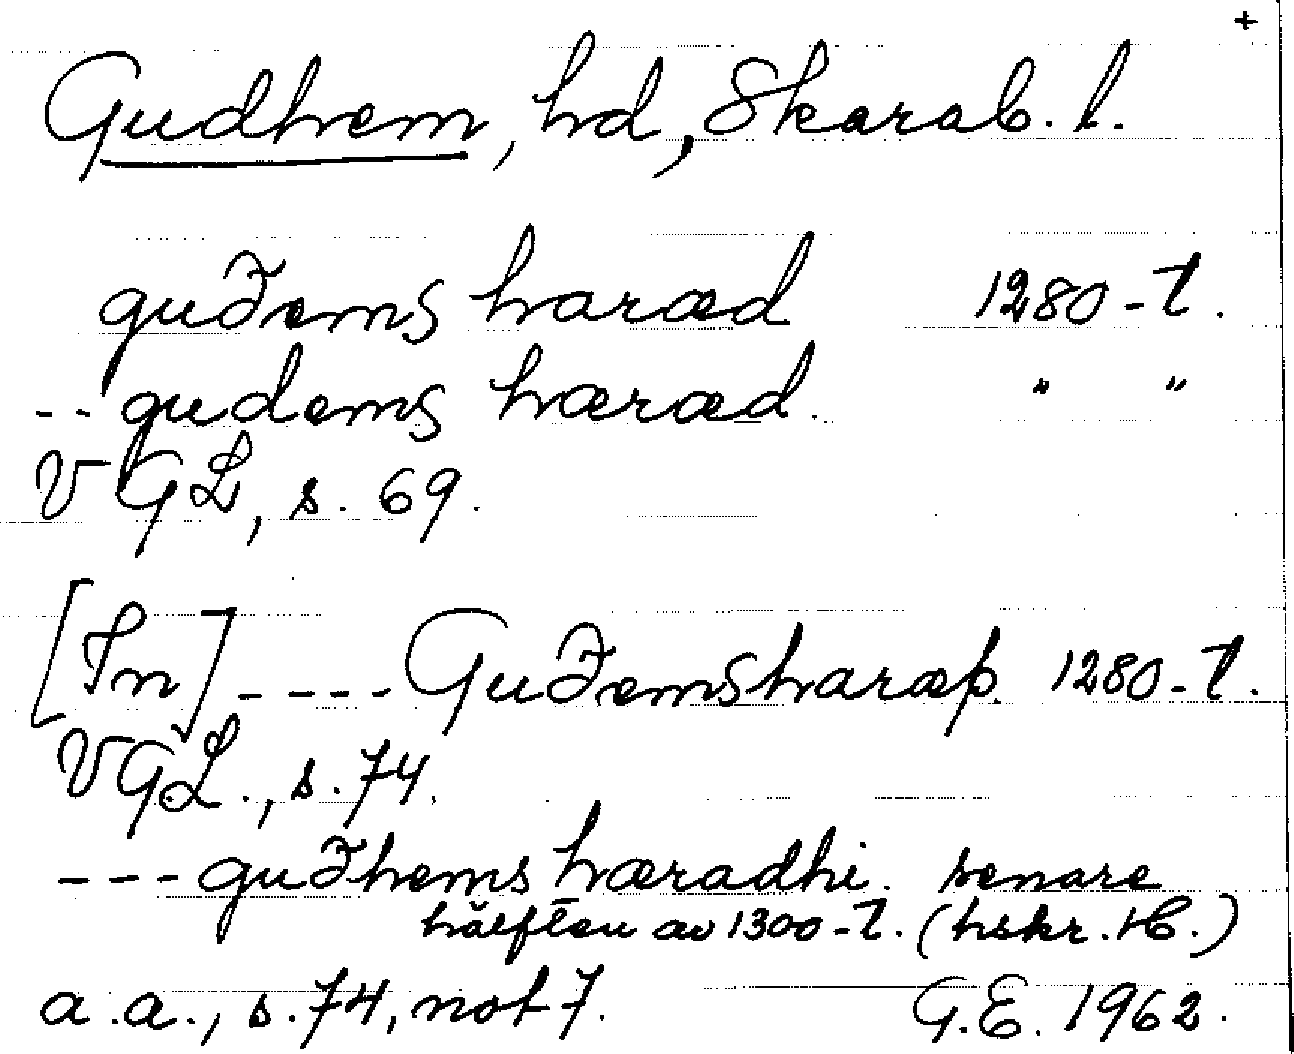 +
Gudhem, hd, Skarab. l.
guðems haræd 1280-t.
-- gudems hæræd. " "
VGL, s. 69.
[In] ---- Guðemsharæþ. 1280-t.
VGL., s. 74.
--- guðhems hæradhi. senare
hälften av 1300-t. (hskr. H.)
a.a., s. 74, not 7. G.E. 1962.